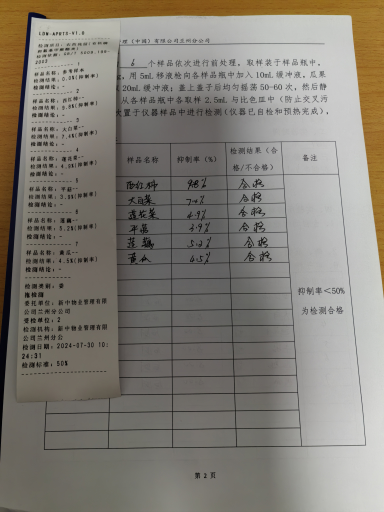 LDN-APDTS-V1.0
检测标准: GB/T 5009.199-2003
1
样品名称: 参考样本
检测结果: 0.0%(抑制率)
检测结论: -
2
样品名称: 西红柿--
检测结论: -
3
样品名称: 大白菜--
检测结果: 7.4%(抑制率)
检测结论: -
4
样品名称: 莲花菜--
检测结果: 4.9%(抑制率)
检测结论: -
5
样品名称: 平菇--
检测结果: 3.9%(抑制率)
检测结论: -
6
样品名称: 莲藕--
检测结果: 5.2%(抑制率)
检测结论: -
7
样品名称: 黄瓜--
检测结果: 4.5%(抑制率)
检测结论: -
检测类别: 委托检测
委托单位: 新中物业管理有限公司兰州分公司
受检单位: 2
检测机构: 新中物业管理有限公司兰州分公
检测日期: 2024-07-30 10:24:31
检测标准: 50%
理(中国)有限公司兰州分公司
6 个样品依次进行前处理。取样装于样品瓶中。
用 5mL 移液枪向各样品瓶中加入 10mL 缓冲液，瓜果
20mL 缓冲液；盖上盖子后均匀摇荡 50-60 次，然后静
从各样品瓶中各取样 2.5mL 与比色皿中（防止交叉污
置于仪器样中进行检测（仪器已自检和预热完成）。
样品名称 抑制率（%） 检测结果（合格/不合格） 备注
西红柿 合格
大白菜 合格
莲花菜 4.9% 合格
平菇 3.9% 合格
莲藕 5.2% 合格
黄瓜 4.5% 合格
抑制率＜50%
为检测合格
第 2 页